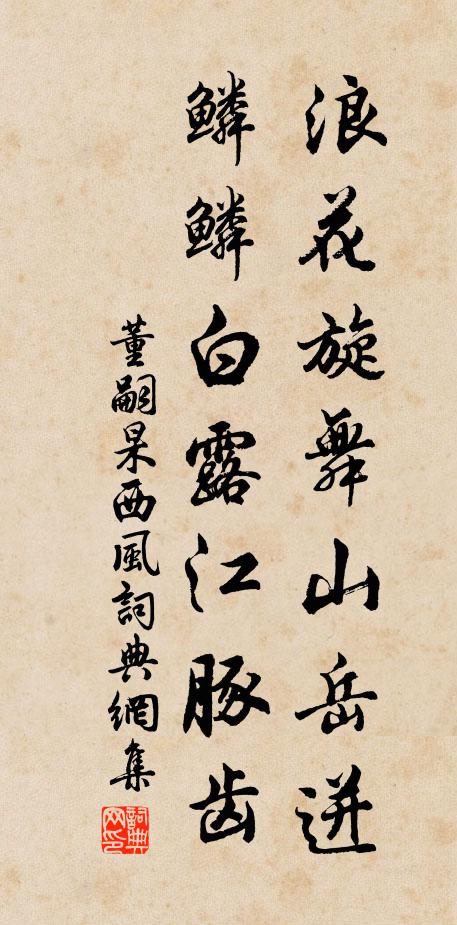 浪花旋舞山岳迸
鳞鳞白露江豚齿
董嗣杲西風詞典網集
詞典網印